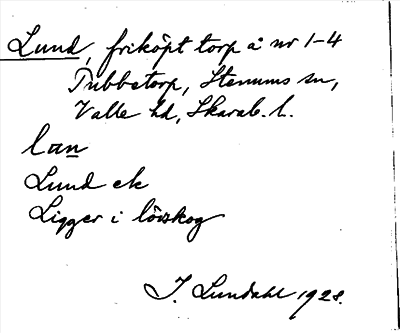 Lund, friköpt torp å nr 1-4
Tubbetorp, Stenums sn,
Valle hd, Skarab. l.
lan
Lund ek
Ligger i lövskog
J. Lundahl 1928.